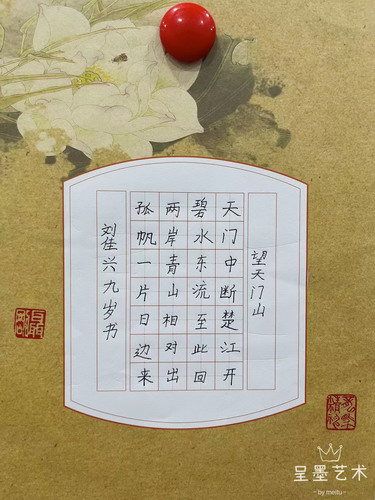 望天门山
天门中断楚江开
碧水东流至此回
两岸青山相对出
孤帆一片日边来
刘佳兴九岁书
呈墨艺术
by meitu